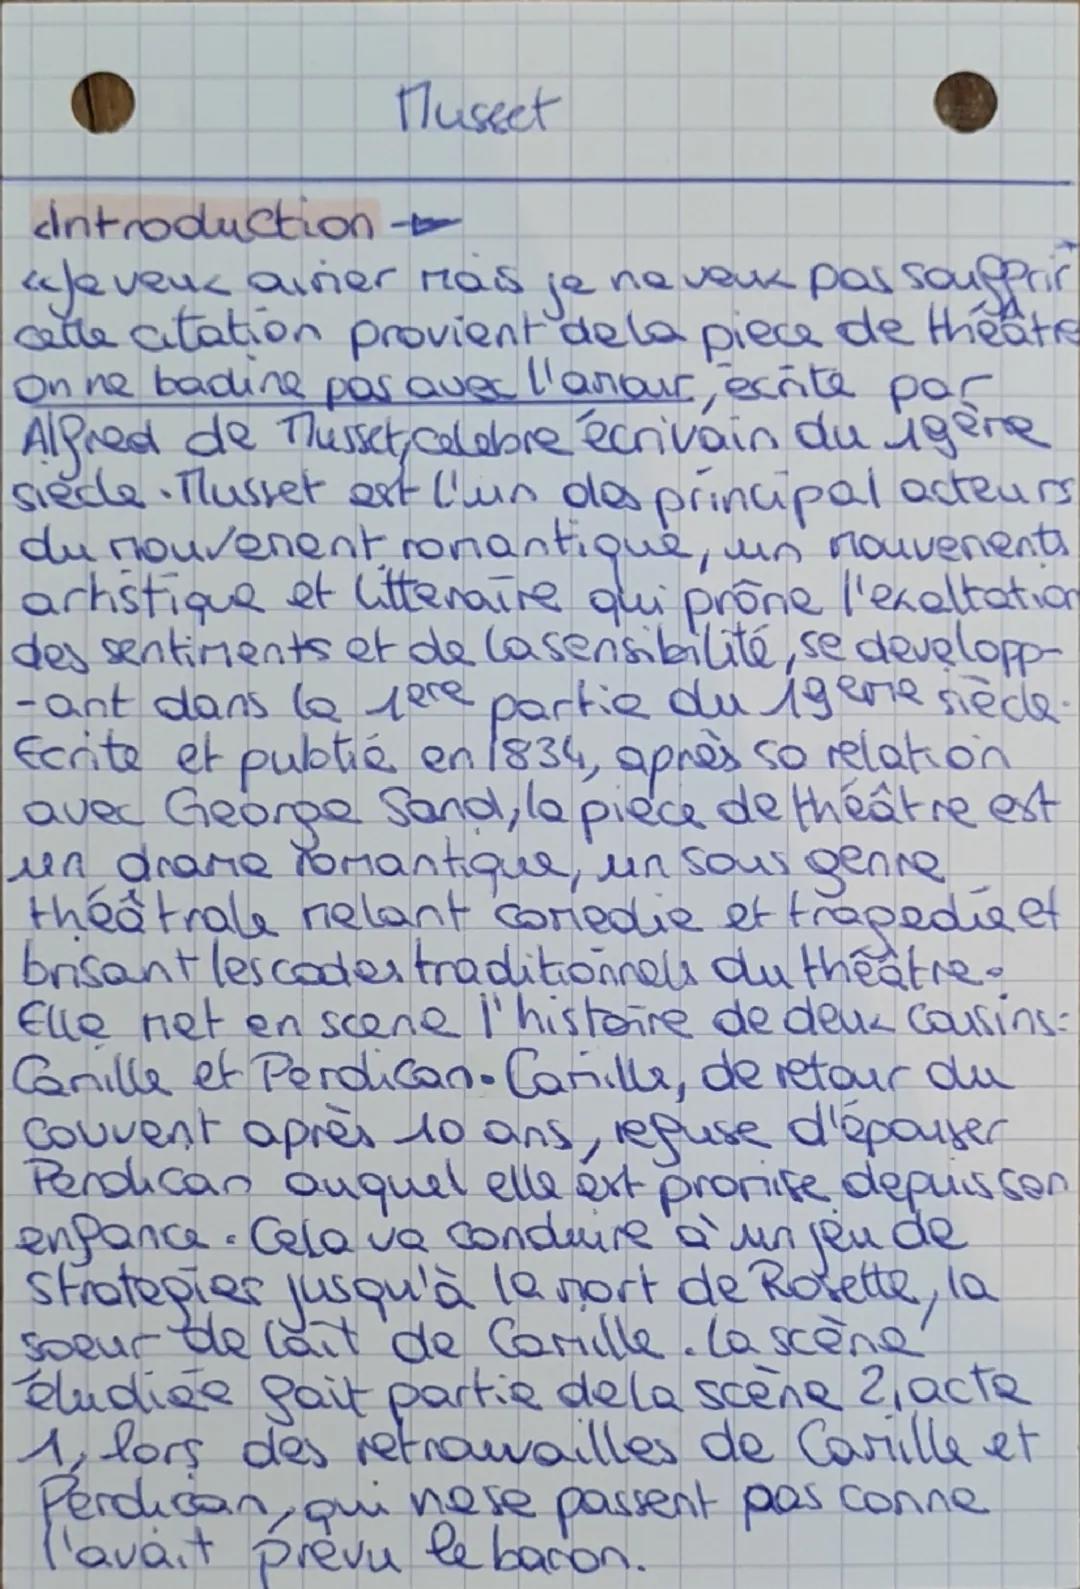 Musset
Introduction →
"Je veux aimer mais je ne veux pas souffrir"
cette citation provient de la piece de théâtre
On ne badine pas avec l'amour, écrite par
Alfred de Musset, celebre écrivain du 19ème
siècle. Musset est l'un des principal acteurs
du mouvement romantique, un mouvements
artistique et litteraire qui prône l'exaltation
des sentiments et de la sensibilité, se developp-
-ant dans la 1ere partie du 19eme siècle.
Ecrite et publié en 1834, après sa relation
avec George Sand, la pièce de théâtre est
un drame romantique, un sous genre
théâtrale melant comedie et tragedie et
brisant les codes traditionnels du théâtre.
Elle met en scene l'histoire de deux cousins:
Camille et Perdican. Camille, de retour du
couvent après 10 ans, refuse d'épouser
Perdican auquel elle est promise depuis son
enfance. Cela va conduire à un jeu de
strategies jusqu'à la mort de Rosette, la
soeur de lait de Camille. La scène
étudiée fait partie de la scène 2, acte
1, lors des retrouvailles de Camille et
Perdican, qui ne se passent pas comme
l'avait prévu le baron.